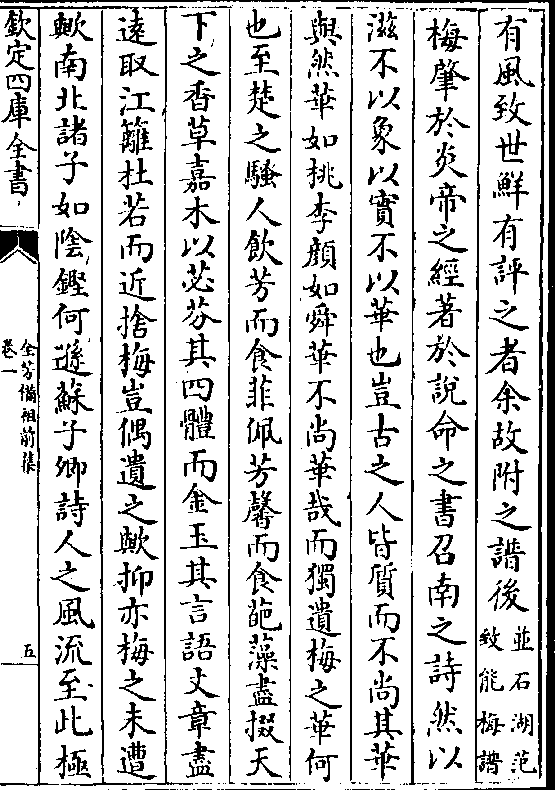 有風致世鮮有評之者余故附之譜後並石湖范致能梅譜
梅肇於炎帝之經著於說命之書召南之詩然以
滋不以象以實不以華也豈古之人皆質而不尚其華
與然華如桃李顔如舜華不尚華哉而獨遺梅之華何
也至楚之騷人飲芳而食菲佩芳馨而食葩藻盡掇天
下之香草嘉木以苾芬其四體而金玉其言語文章盡
遠取江蘺杜若而近捨梅豈偶遺之歟抑亦梅之未遭
歟南北諸子如陰鏗何遜蘇子卿詩人之風流至此極
欽定四庫全書
全芳備祖前集
卷一
五